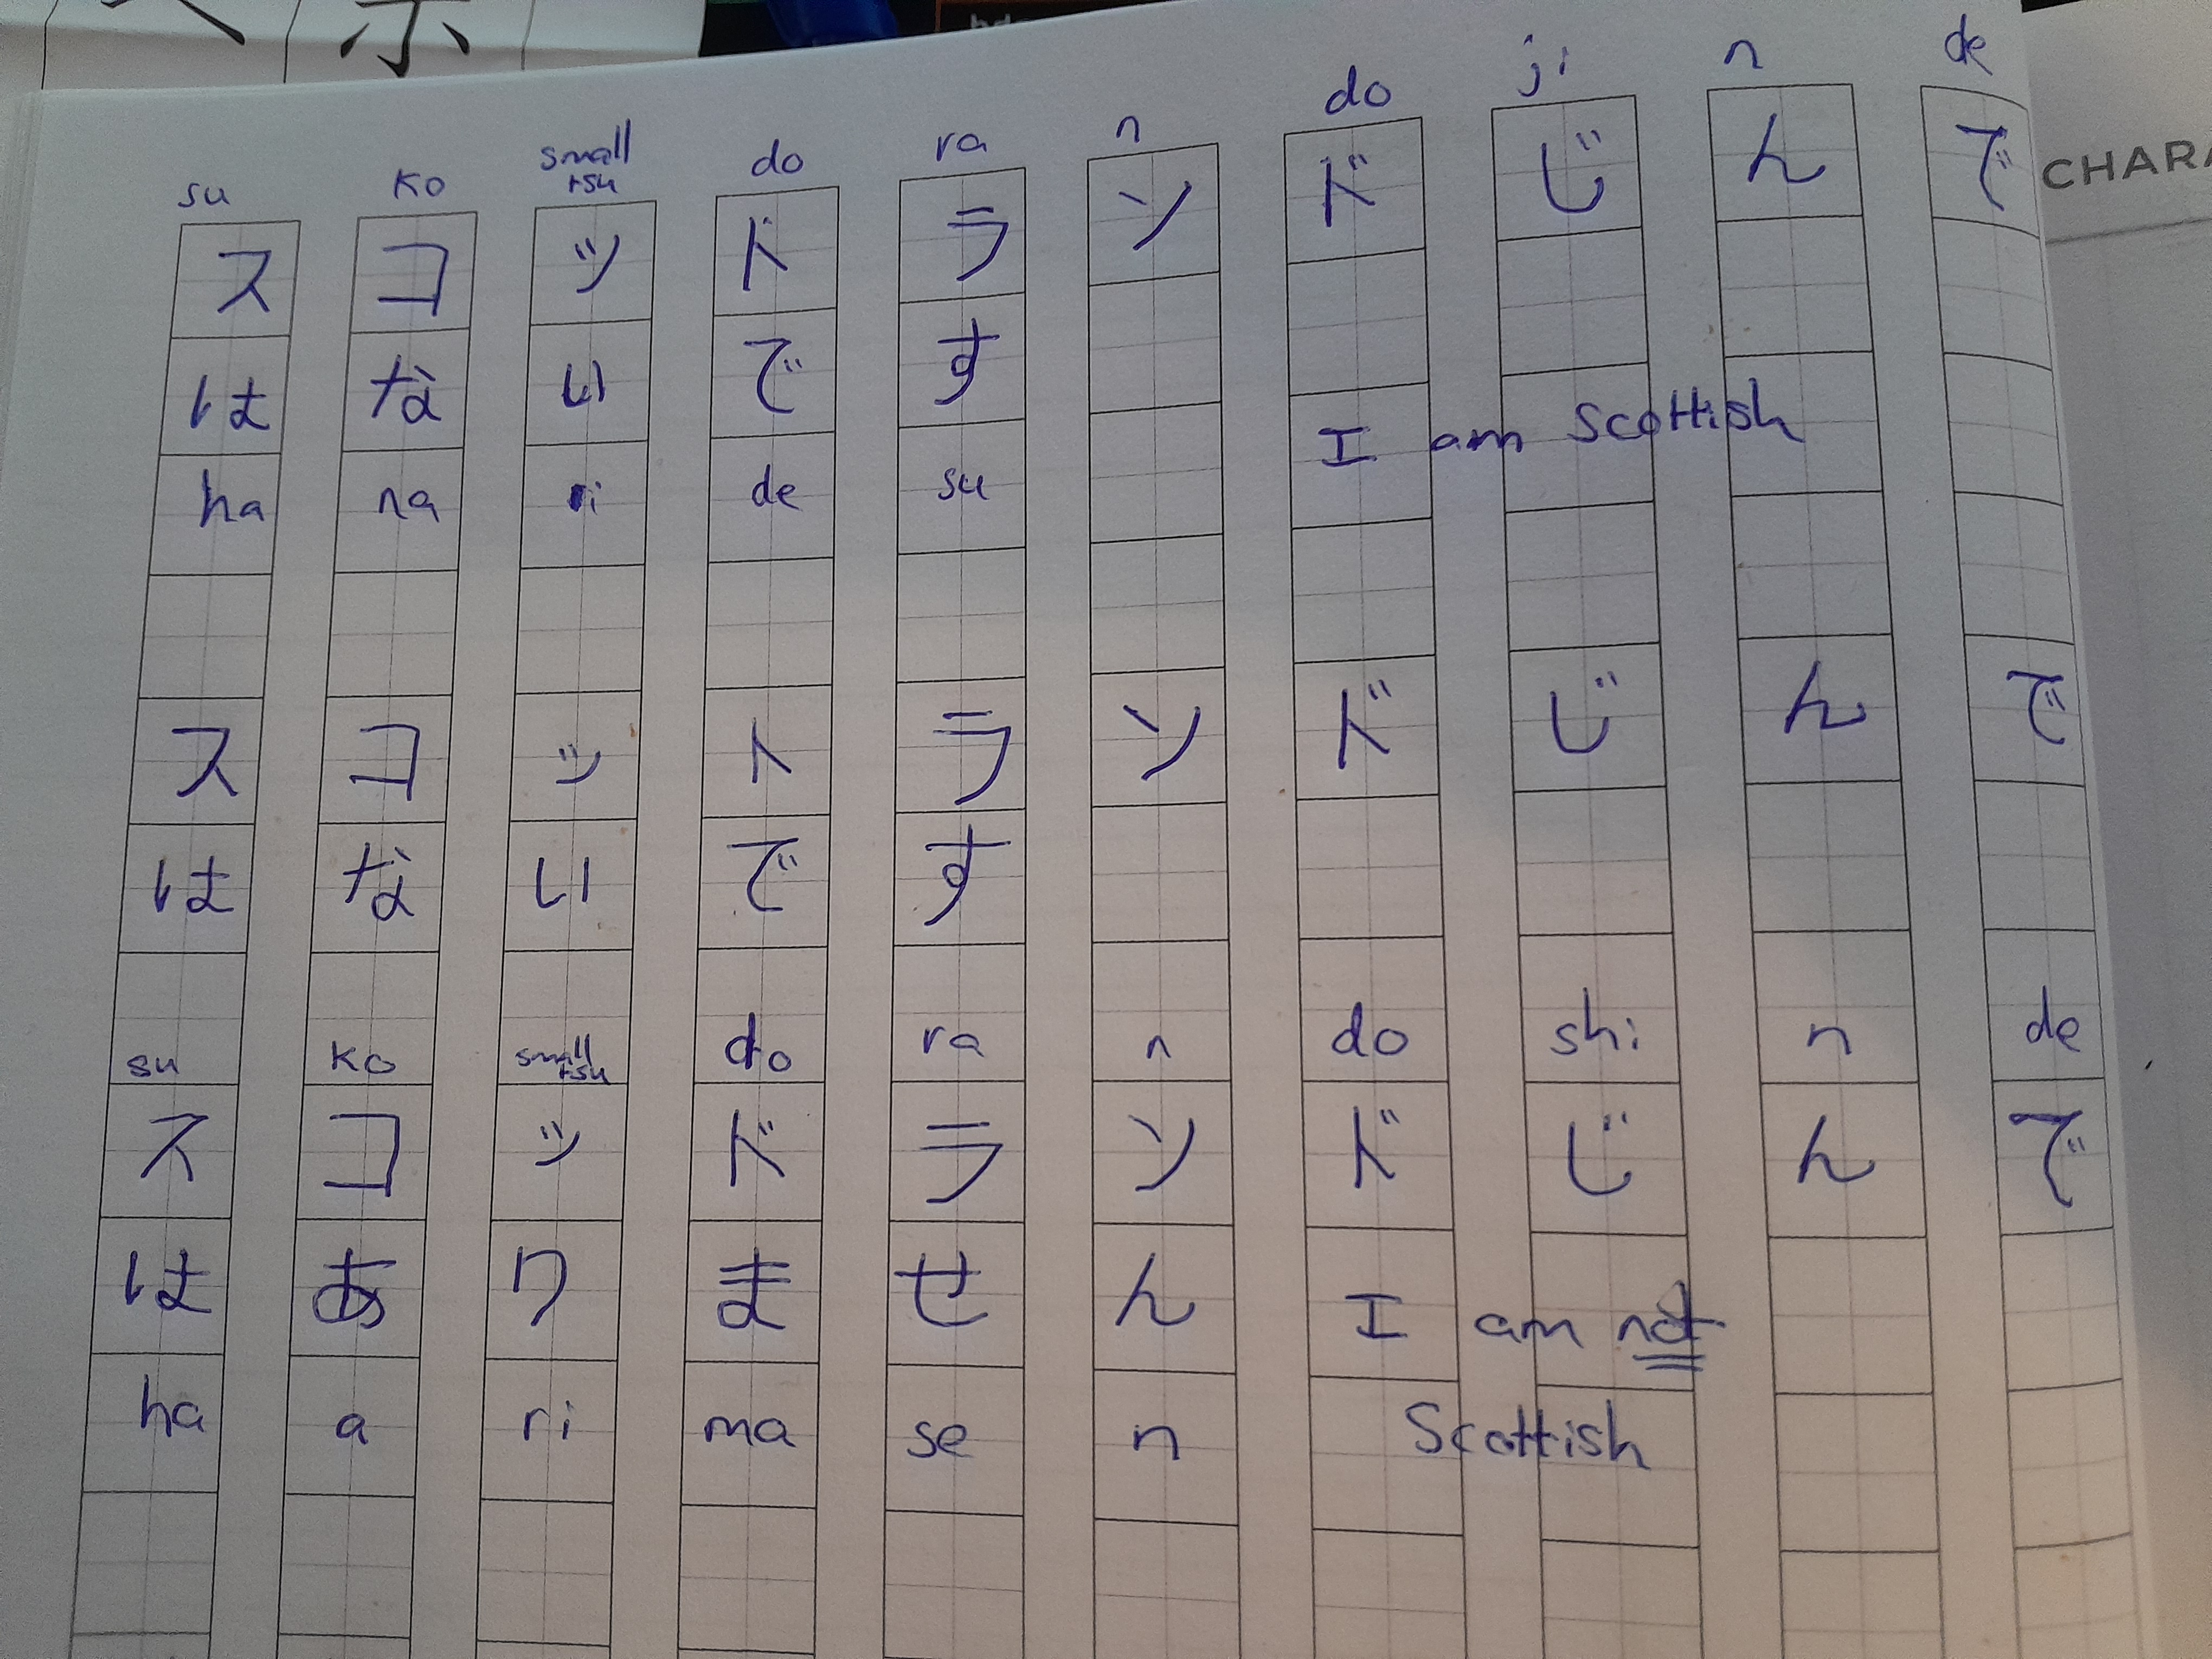 su ko small tsu do ra n do ji n de
ス コ ッ ド ラ ン ド じ ん で
CHARA
は な い で す
I am Scottish
ha na ri de su
ス コ ッ ト ラ ン ド じ ん で
は な い で す
su ko small tsu do ra n do shi n de
ス コ ッ ド ラ ン ド じ ん で
は あ り ま せ ん I am not
ha a ri ma se n Scottish